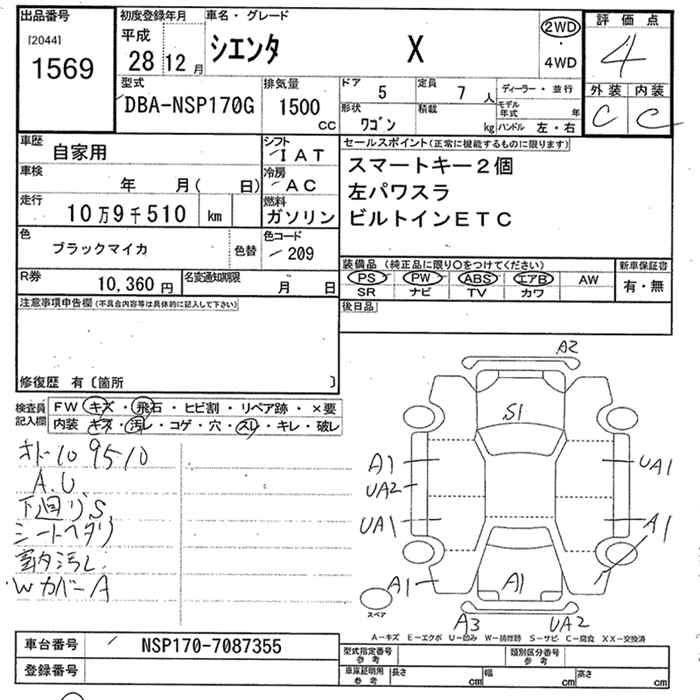 出品番号
[2044]
1569
初度登録年月
平成
28 12 月
車名・グレード
シエンタ X
2WD
・
4WD
評価点
4
外装 内装
C C
型式
DBA-NSP170G
排気量
1500
CC
ドア 5
定員 7 人
ディーラー・並行
形状
ワゴン
積載
kg
モデル年式 年
ハンドル 左・右
車歴
自家用
シフト
IAT
車検
年 月( 日)
冷房
AC
走行
10万9千510 km
燃料
ガソリン
色
ブラックマイカ
色替
色コード
209
R券
10,360 円
名変通知期限
月 日
セールスポイント(正常に機能するものに限ります)
スマートキー2個
左パワスラ
ビルトインETC
装備品 (純正品に限り○をつけてください)
PS PW ABS エアB AW
SR ナビ TV カワ
新車保証書
有・無
後日品
注意事項申告欄(不具合内容等は具体的に記入して下さい)
修復歴 有〔箇所 〕
検査員
記入欄
FW キズ・飛石・ヒビ割・リペア跡・×要
内装 キズ・汚レ・コゲ・穴・スレ・キレ・破レ
オドー109510
A.U
下廻りS
シートヘタリ
室内汚レ
WカバーA
A2
S1
A1
UA2
UA1
A1
UA1
A1
A1
A3
UA2
スペア
A-キズ E-エクボ U-凹み W-補修跡 S-サビ C-腐食 XX-交換済
車台番号
NSP170-7087355
登録番号
型式指定番号
参考
類別区分番号
参考
車庫証明用
参考
長さ cm
幅 cm
高さ cm